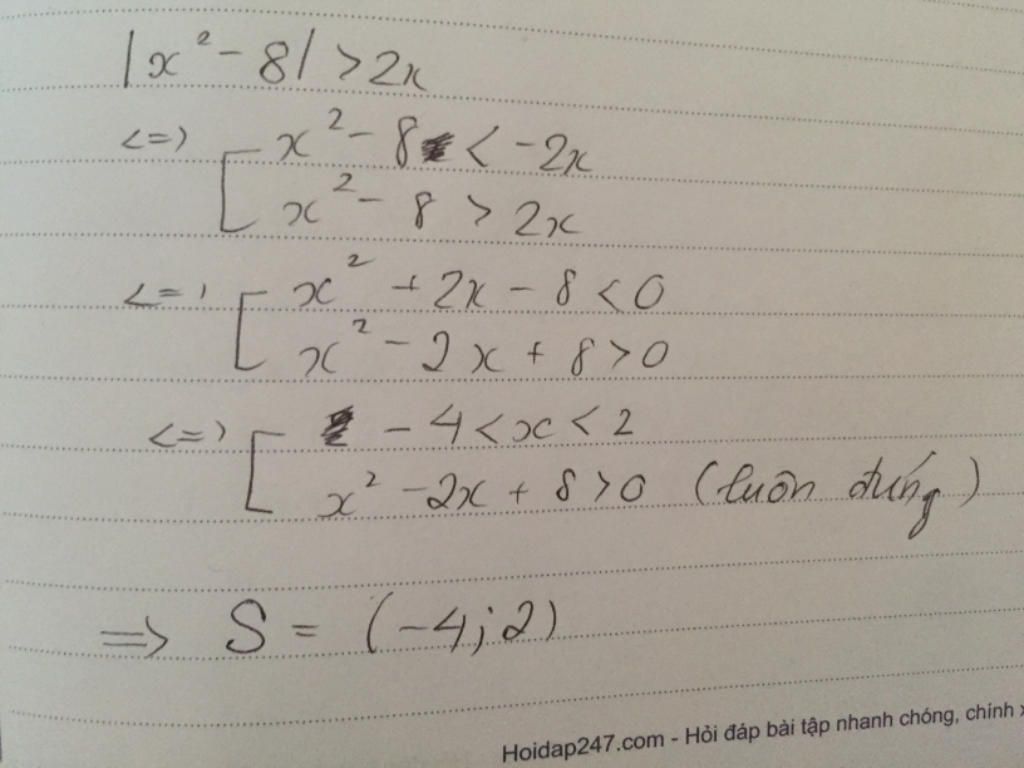 |x² - 8| > 2x
<=> [ x² - 8 < -2x
x² - 8 > 2x
<=> [ x² + 2x - 8 < 0
x² - 2x + 8 > 0
<=> [ - 4 < x < 2
x² - 2x + 8 > 0 (luôn đúng)
=> S = (-4; 2)
Hoidap247.com - Hỏi đáp bài tập nhanh chóng, chính x